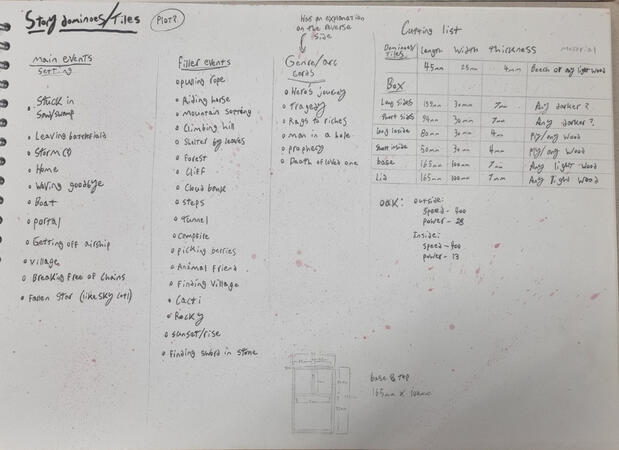 Story dominoes/Tiles
PLOT?
main events
Setting
Stuck in
Sand/swamp
Leaving battlefield
Storm
Home
Waving goodbye
Boat
portal
Getting off airship
village
Breaking free of Chains
Fallen Star (like sky
Filler events
pulling rope
Riding horse
mountain setting
Climbing hill
Shelter by leaves
Forest
Cliff
Cloud
Steps
Tunnel
Campfire
picking berries
Animal Friend
Finding Village
Cacti
Rocky
sunset/rise
Finding sword in stone
Has an explanation
on the reverse
side
Genre/arc
cards
Heros journey
Tragedy
Rags to riches
man in a hole
prophecy
Death of loved one
Cutting list
Dominoes/
Tiles
Length Width thickness material
45mm 25mm 4mm Beech or any light wood
Box
Long sides 30mm 7mm Any darker?
short sides 94mm 30mm 7mm Any darker?
Long inside 80mm 30mm 4mm Ply/any wood
short inside 50mm 30mm 4mm Ply/any wood
base 165mm 100mm 7mm Any light wood
Lid 165mm 100mm 7mm Any light wood
oak: Outside:
Speed - 400
power - 28
Inside:
speed - 400
power - 13
base & top
165mm x 100mm